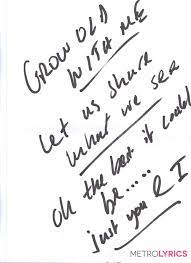 GROW OLD
WITH ME
let us share
what we see
oh the best it could
be.....
just you & I
METROLYRICS